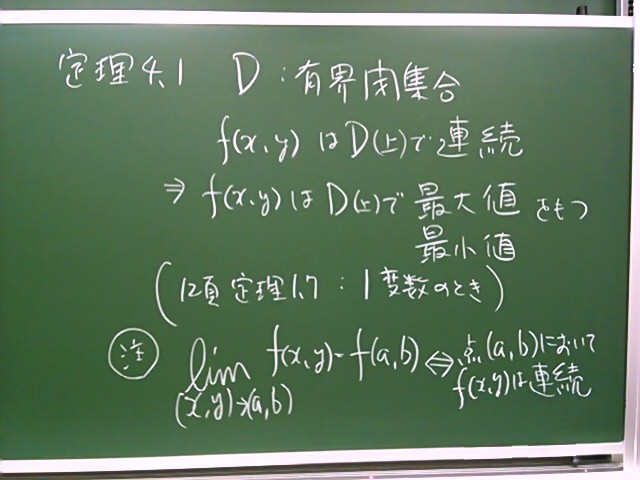 定理4.1 D:有界閉集合
f(x,y)はD(上)で連続
⇒ f(x,y)はD(上)で最大値をもつ
最小値
(12頁 定理1.7:1変数のとき)
注 lim f(x,y)=f(a,b)⇔点(a,b)において
(x,y)→(a,b) f(x,y)は連続